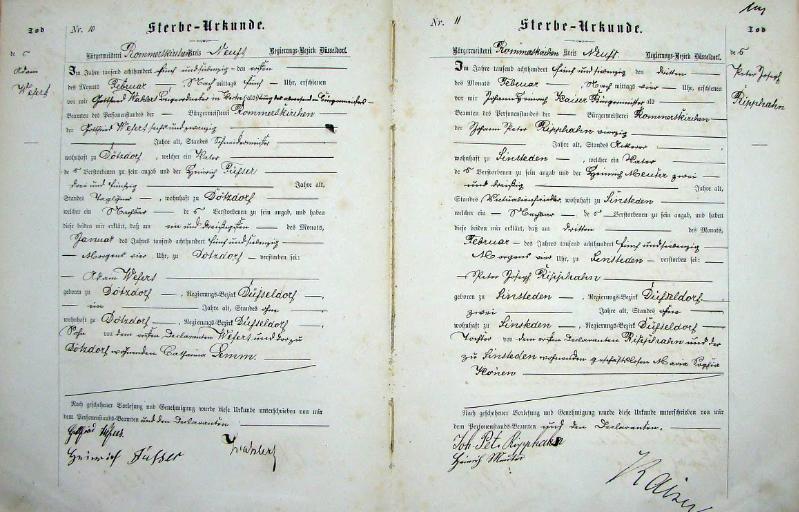 Tod
Nr. 10
Sterbe-Urkunde.
Bürgermeisterei Rommerskirchen Kreis Neuß Regierungs-Bezirk Düsseldorf.
des
Adam
Wefers
Im Jahre tausend achthundert fünf und siebenzig den ersten
des Monats Februar, Nach mittags fünf Uhr, erschienen
vor mir Gottfried Wahlers
Beamten des Personenstandes der Bürgermeisterei Rommerskirchen
der Gottfried Wefers
Jahre alt, Standes Schneidermeister
wohnhaft zu Götzdorf, welcher ein Vater
des Verstorbenen zu sein angab und der Heinrich Füsser
drei und fünfzig Jahre alt,
Standes Taglöhner, wohnhaft zu Götzdorf
welcher ein Nachbar des Verstorbenen zu sein angab, und haben
diese beiden mir erklärt, daß am ein und dreißigsten des Monats,
Januar des Jahres tausend achthundert fünf und siebenzig
Morgens vier Uhr, zu Götzdorf verstorben sei:
Adam Wefers
geboren zu Götzdorf, Regierungs-Bezirk Düsseldorf
ein Jahr alt, Standes ohne
wohnhaft zu Götzdorf, Regierungs-Bezirk Düsseldorf
Sohn von dem ersten Declaranten Wefers und der zu
Götzdorf wohnenden Catharina Lemm.
Nach geschehener Vorlesung und Genehmigung wurde diese Urkunde unterschrieben von mir
dem Personenstands-Beamten und den Declaranten
Gottfried Wefers
Heinrich Füsser
Wahlers
Nr. 11
Sterbe-Urkunde.
Tod
Bürgermeisterei Rommerskirchen Kreis Neuß Regierungs-Bezirk Düsseldorf.
des
Peter Joseph
Ripphahn
Im Jahre tausend achthundert fünf und siebenzig den dritten
des Monats Februar, Nach mittags vier Uhr, erschienen
vor mir Johann Kaiser Bürgermeister als
Beamten des Personenstandes der Bürgermeisterei Rommerskirchen
der Johann Peter Ripphahn vierzig
Jahre alt, Standes Ackerer
wohnhaft zu Sinsteden, welcher ein Vater
des Verstorbenen zu sein angab und der Heinrich Meuter zwei
und dreißig Jahre alt,
Standes wohnhaft zu Sinsteden
welcher ein Nachbar des Verstorbenen zu sein angab, und haben
diese beiden mir erklärt, daß am dritten des Monats,
Februar des Jahres tausend achthundert fünf und siebenzig
Morgens vier Uhr, zu Sinsteden verstorben sei:
Peter Joseph Ripphahn
geboren zu Sinsteden, Regierungs-Bezirk Düsseldorf
zwei Jahre alt, Standes ohne
wohnhaft zu Sinsteden, Regierungs-Bezirk Düsseldorf
von dem ersten Declaranten Ripphahn und der
zu Sinsteden wohnenden geschäftslosen Maria Sophia
Nach geschehener Vorlesung und Genehmigung wurde diese Urkunde unterschrieben von mir
dem Personenstands-Beamten und den Declaranten.
Joh. Pet. Ripphahn
Heinrich Meuter
Kaiser